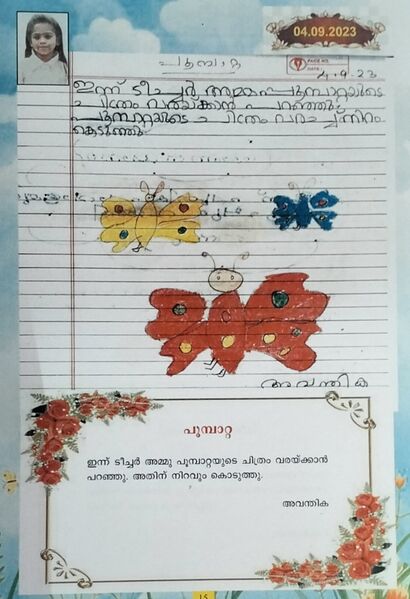 04.09.2023
പൂമ്പാറ്റ
PAGE NO.
DATE
4-9-23
ഇന്ന് ടീച്ചർ അമ്മുപൂമ്പാറ്റയുടെ
ചിത്രം വരയ്ക്കാൻ പറഞ്ഞു.
പൂമ്പാറ്റയുടെ ചിത്രം വരച്ച് നിറം
കൊടുത്തു.
അവന്തിക
പൂമ്പാറ്റ
ഇന്ന് ടീച്ചർ അമ്മു പൂമ്പാറ്റയുടെ ചിത്രം വരയ്ക്കാൻ
പറഞ്ഞു. അതിന് നിറവും കൊടുത്തു.
അവന്തിക
15